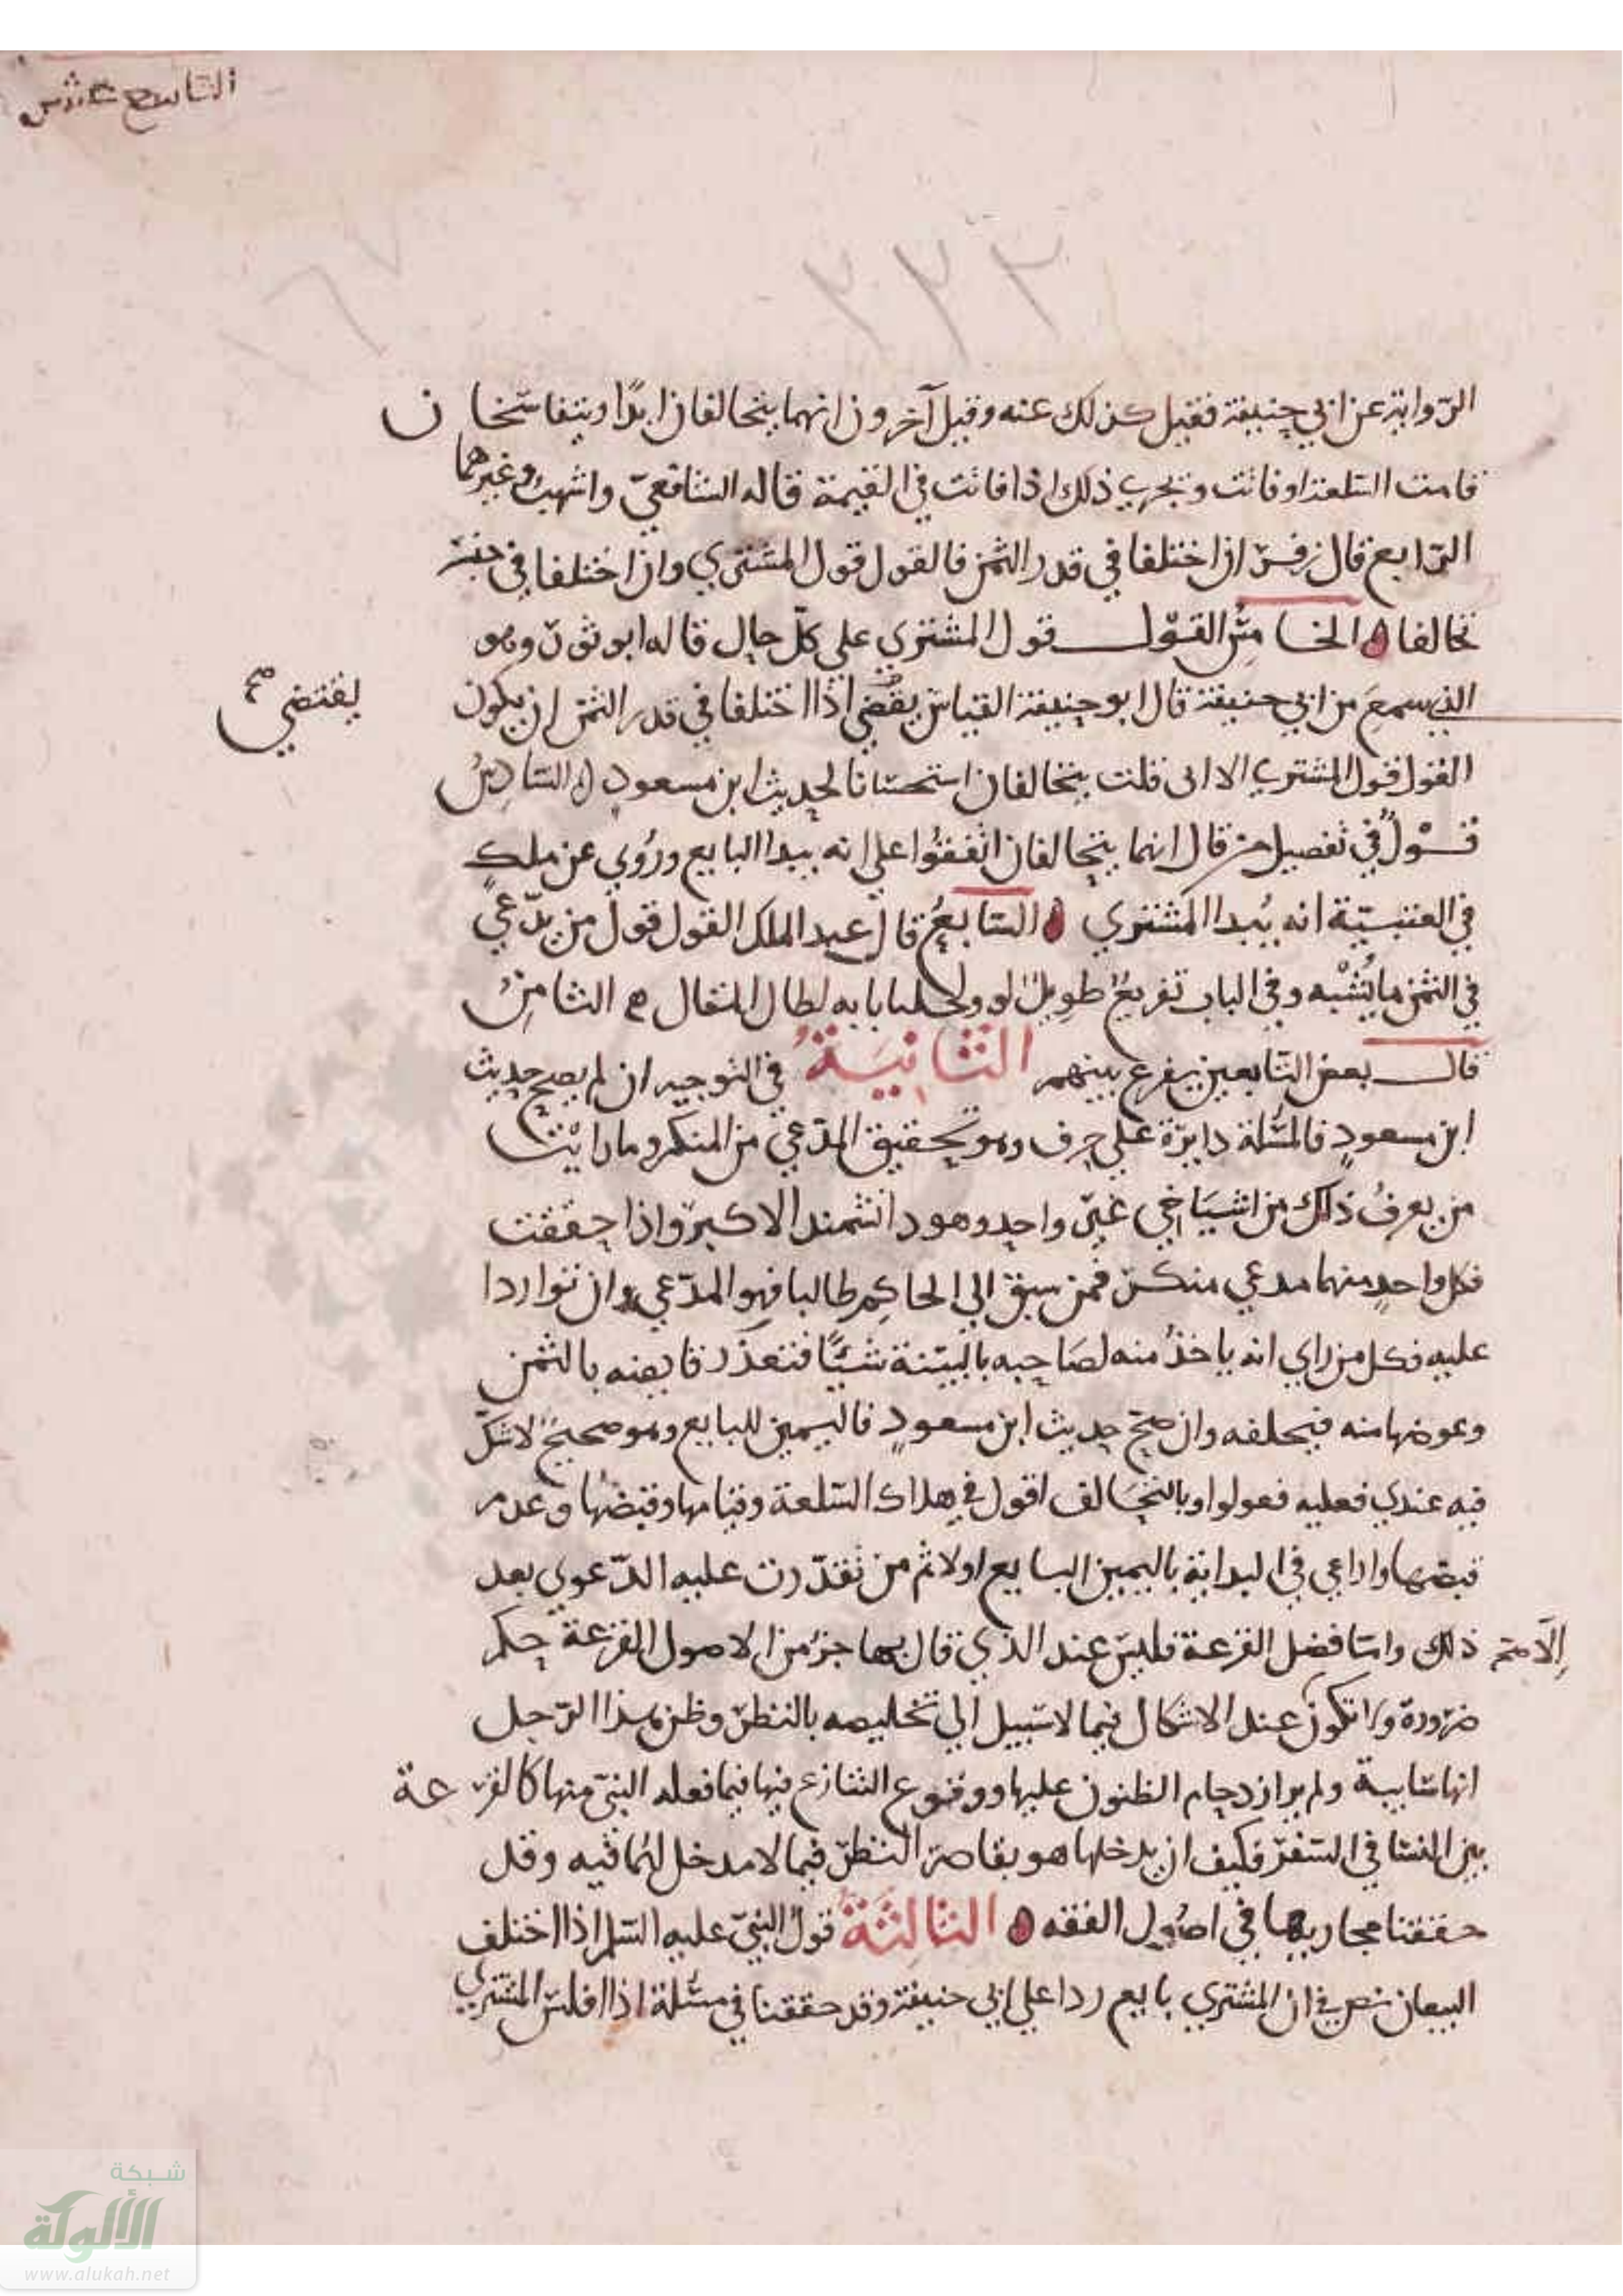 التاسع عشر
٢٢٣
١٦٧
الرواية عن ابي حنيفة فقيل كذلك عنه وقيل آخرون انهما يتحالفان ابدًا ويتفاسخان
قامت السّلعة او فاتت ويجري ذلك اذا فاتت في القيمة قاله الشافعيّ واشهبُ وغيرهما
الرّابع قال زفر اذا اختلفا في قدر الثمن فالقول قول المشتري واذا اختلفا في جنسه
تحالفا ه الخامسُ القول قول المشتري علي كلّ حال قاله ابو ثور وهو
الذي سمعَ من ابي حنيفة قال ابو حنيفة القياس يقضي اذا اختلفا في قدر الثمن ان يكون
يقتضي صح
القول قول المشتري الا اني قلت يتحالفان استحسانا لحديث ابن مسعودٍ ه السّادسُ
قولٌ في تفصيل من قال انهما يتحالفان اتفقُوا علي انه يبدا البايع ورُوي عن ملك
في العتبيّة انه يُبدا المشتري ه السّابعُ قال عبد الملك القول قول من يدّعي
في الثمن ما يُشبه وفي الباب تفريعٌ طويلٌ لو ولجلنا بابه لطال المقال ه الثامنُ
قال بعض التّابعين يقرع بينهم الثَّانِيَةُ في التوجيه ان لم يصح حديث
ابن مسعودٍ فالمسُلة دايرة علي حرف وهو تحقيق المدّعي من المنكر وما رايتُ
من يعرفُ ذلك من اشيَاخي غير واحد وهو دانشمند الاكبر واذا حققت
فكل واحدٍ منهما مدعي منكر فمن سبق الي الحاكِم طالبا فهو المدّعي وان تواردا
عليه فكل من راي انه ياخذُ منه لصَاحبه بالبيّنة شيًّا فتعذّر قابضه بالثمن
وعوضها منه فيحلفه وان صحّ حديث ابن مسعودٍ فاليمين للبايع وهو صحيحٌ لا شكّ
فيه عندي فعليه فعولوا وبالتحَالف اقول في هلاك السّلعة وقيامها وقبضها وعدم
قبضها واراعي في البداية باليمين البايع اولا ثم من تقدّرت عليه الدّعوي بعد
ذلك واما فصل القرعة فليس عند الذي قال بها جزُ من الاصول القرعة حكم
اِلّا صح
ضرورة وانما تكون عند الاشكال فيما لا سبيل الي تخليصه بالنظر وظن هذا الرّجل
انها سايبة ولم ير ازدحام الظنون عليها ووقوع التنازع فيها فيما فعله النبيّ منها كالقرعة
بين النسا في السّفر فكيف ان يدخلها هو بقاصر النظر فيما لا مدخل لهُا فيه وقد
حققنا مجاريها في اصُول الفقه ه الثالِثَةُ قولُ النبيّ عليه السّلم اذا اختلف
البيعان نص في ان المشتري بايع ردا علي ابي حنيفة وقد حققنا في مسُلة اذا افلس المشتري
شبكة
الألوكة
www.alukah.net